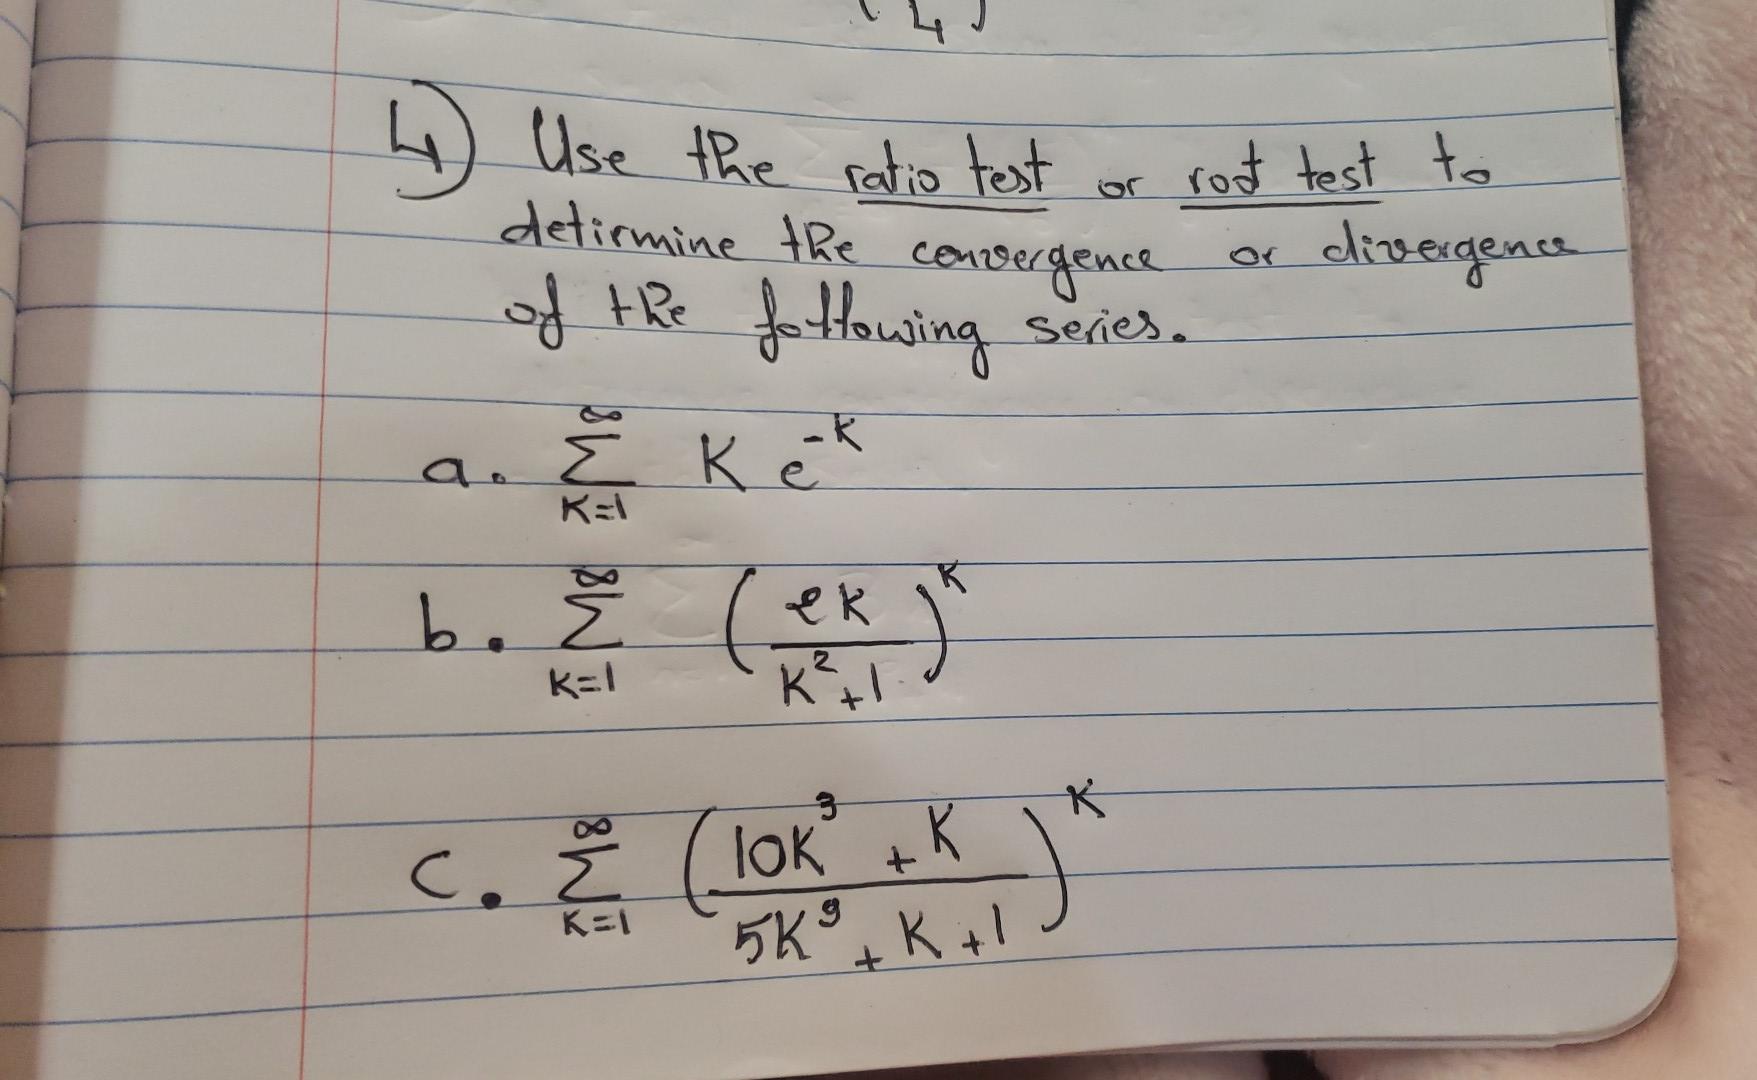 4) Use the ratio test or root test to
detirmine the convergence or divergence
of the following series.
a. ∞ Σ K=1 K e^-K
b. ∞ Σ K=1 (eK / K^2+1)^K
c. ∞ Σ K=1 (10K^3 + K / 5K^9 + K + 1)^K